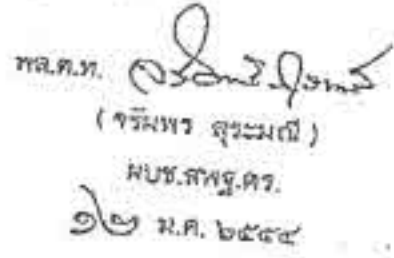 พล.ต.ท.
( จรัมพร สุระมณี )
ผบช.สพฐ.ตร.
๑๒ ม.ค. ๒๕๕๔